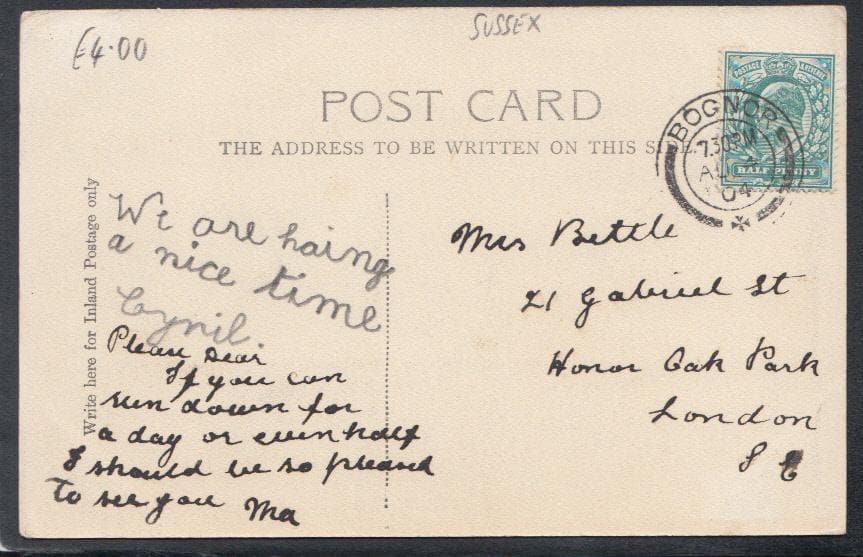 £4.00
SUSSEX
POST CARD
THE ADDRESS TO BE WRITTEN ON THIS SIDE.
POSTAGE REVENUE
HALFPENNY
BOGNOR
7.30PM
AU 4
04
Write here for Inland Postage only
We are haing
a nice time
Cyril.
Please Dear.
If you can
run down for
a day or even half
I should be so pleased
to see you Ma
Mrs Bettle
21 Gabriel St
Honor Oak Park
London
S E